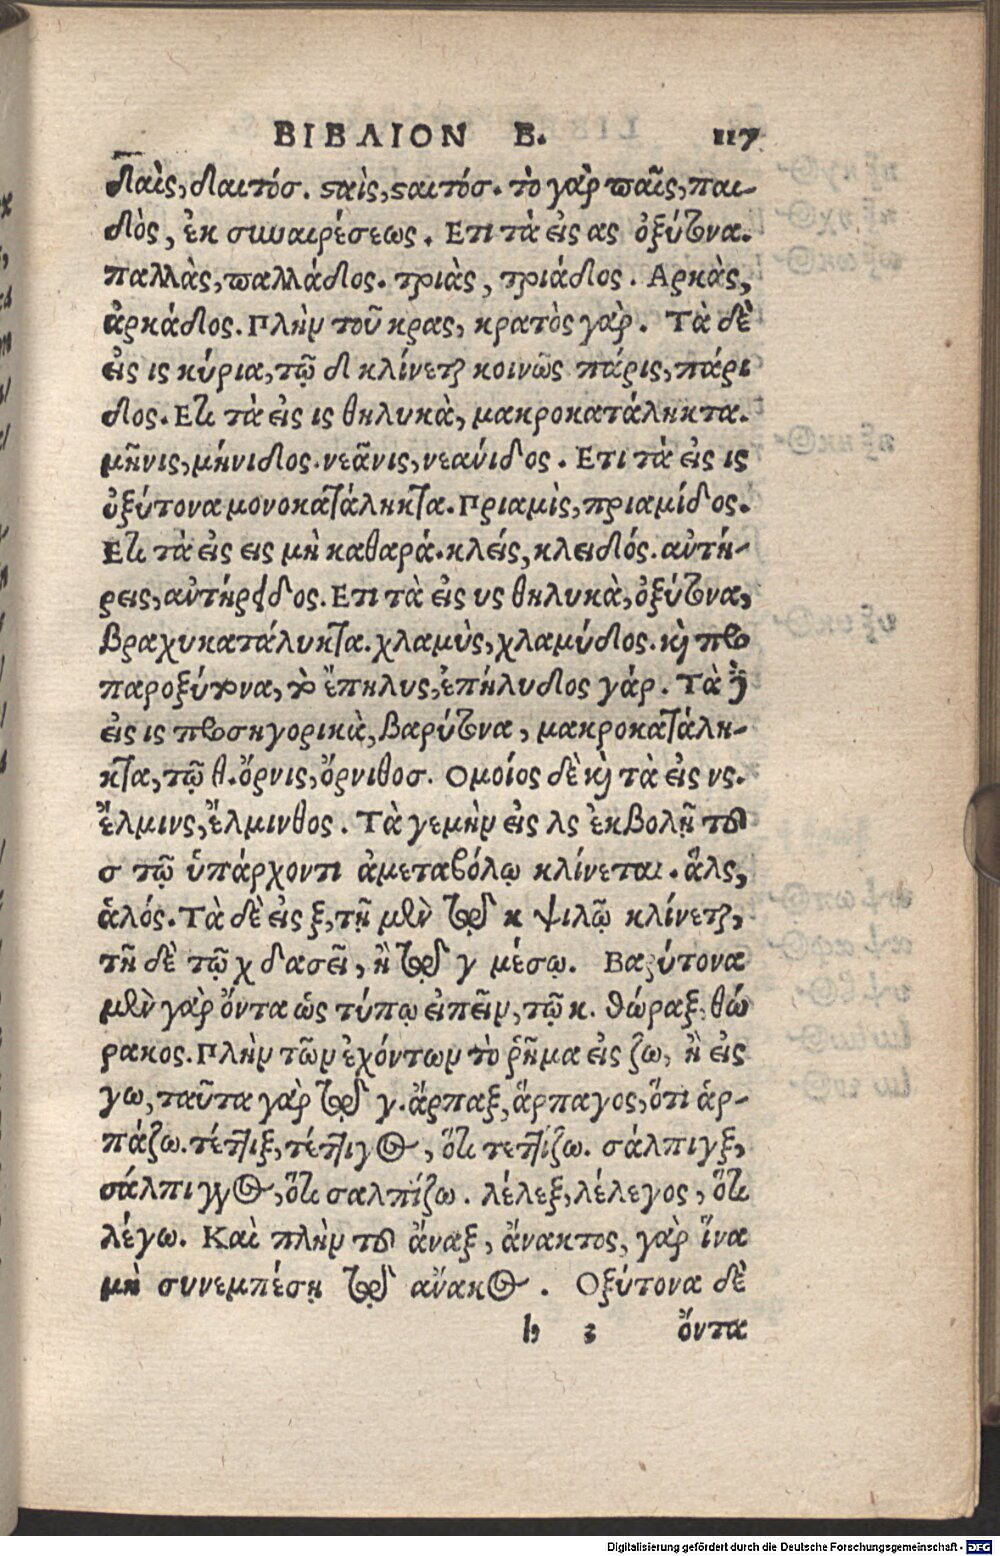 ΒΙΒΛΙΟΝ Β. 117
δαὶς, δαιτόσ. ϛαὶς, ϛαιτόσ. τὸ γὰρ παῖς, παι-
δὸς, ἐκ συναιρέσεως. Ετι τὰ εἰς ας ὀξύτονα.
παλλὰς, παλλάδος. τριὰς, τριάδος. Αρκὰς,
ἀρκάδος. Πλὴν τοῦ κρας, κρατὸς γὰρ. Τὰ δὲ
εἰς ις κύρια, τῷ δ κλίνεται κοινῶς πάρις, πάρι
δος. Ετι τὰ εἰς ις θηλυκὰ, μακροκατάληκτα.
μῆνις, μήνιδος. νεᾶνις, νεανίδος. Ετι τὰ εἰς ις
ὀξύτονα μονοκατάληκτα. Πριαμὶς, πριαμίδος.
Ετι τὰ εἰς εις μὴ καθαρά. κλείς, κλειδός. αὐτή-
ρεις, αὐτήρειδος. Ετι τὰ εἰς υς θηλυκὰ, ὀξύτονα,
βραχυκατάλυκτα. χλαμὺς, χλαμύδος. καὶ προ
παροξύτονα, τὸ ἔπηλυς, ἐπήλυδος γάρ. Τὰ δὲ
εἰς ις προσηγορικὰ, βαρύτονα, μακροκατάλη-
κτα, τῷ θ. ὄρνις, ὄρνιθοσ. Ομοίος δὲ καὶ τὰ εἰς νς.
ἕλμινς, ἕλμινθος. Τὰ γεμὴν εἰς λς ἐκβολῇ τοῦ
σ τῷ ὑπάρχοντι ἀμεταβόλῳ κλίνεται. ἅλς,
ἁλός. Τὰ δὲ εἰς ξ, τῇ μὲν διὰ τοῦ κ ψιλῷ κλίνεται,
τῇ δὲ τῷ χ δασεῖ, ἢ διὰ τοῦ γ μέσῳ. Βαρύτονα
μὲν γὰρ ὄντα ὡς τύπῳ εἰπεῖν, τῷ κ. θώραξ, θώ
ρακος. Πλὴν τῶν ἐχόντων τὸ ῥῆμα εἰς ζω, ἢ εἰς
γω, ταῦτα γὰρ διὰ τοῦ γ. ἅρπαξ, ἅρπαγος, ὅτι ἁρ-
πάζω. τέττιξ, τέττιγος, ὅτι τεττίζω. σάλπιγξ,
σάλπιγγος, ὅτι σαλπίζω. λέλεξ, λέλεγος, ὅτι
λέγω. Καὶ πλὴν τοῦ ἄναξ, ἄνακτος, γὰρ ἵνα
μὴ συνεμπέσῃ διὰ τοῦ ἄνακος. Οξύτονα δὲ
h 3 ὄντα
Digitalisierung gefördert durch die Deutsche Forschungsgemeinschaft - DFG